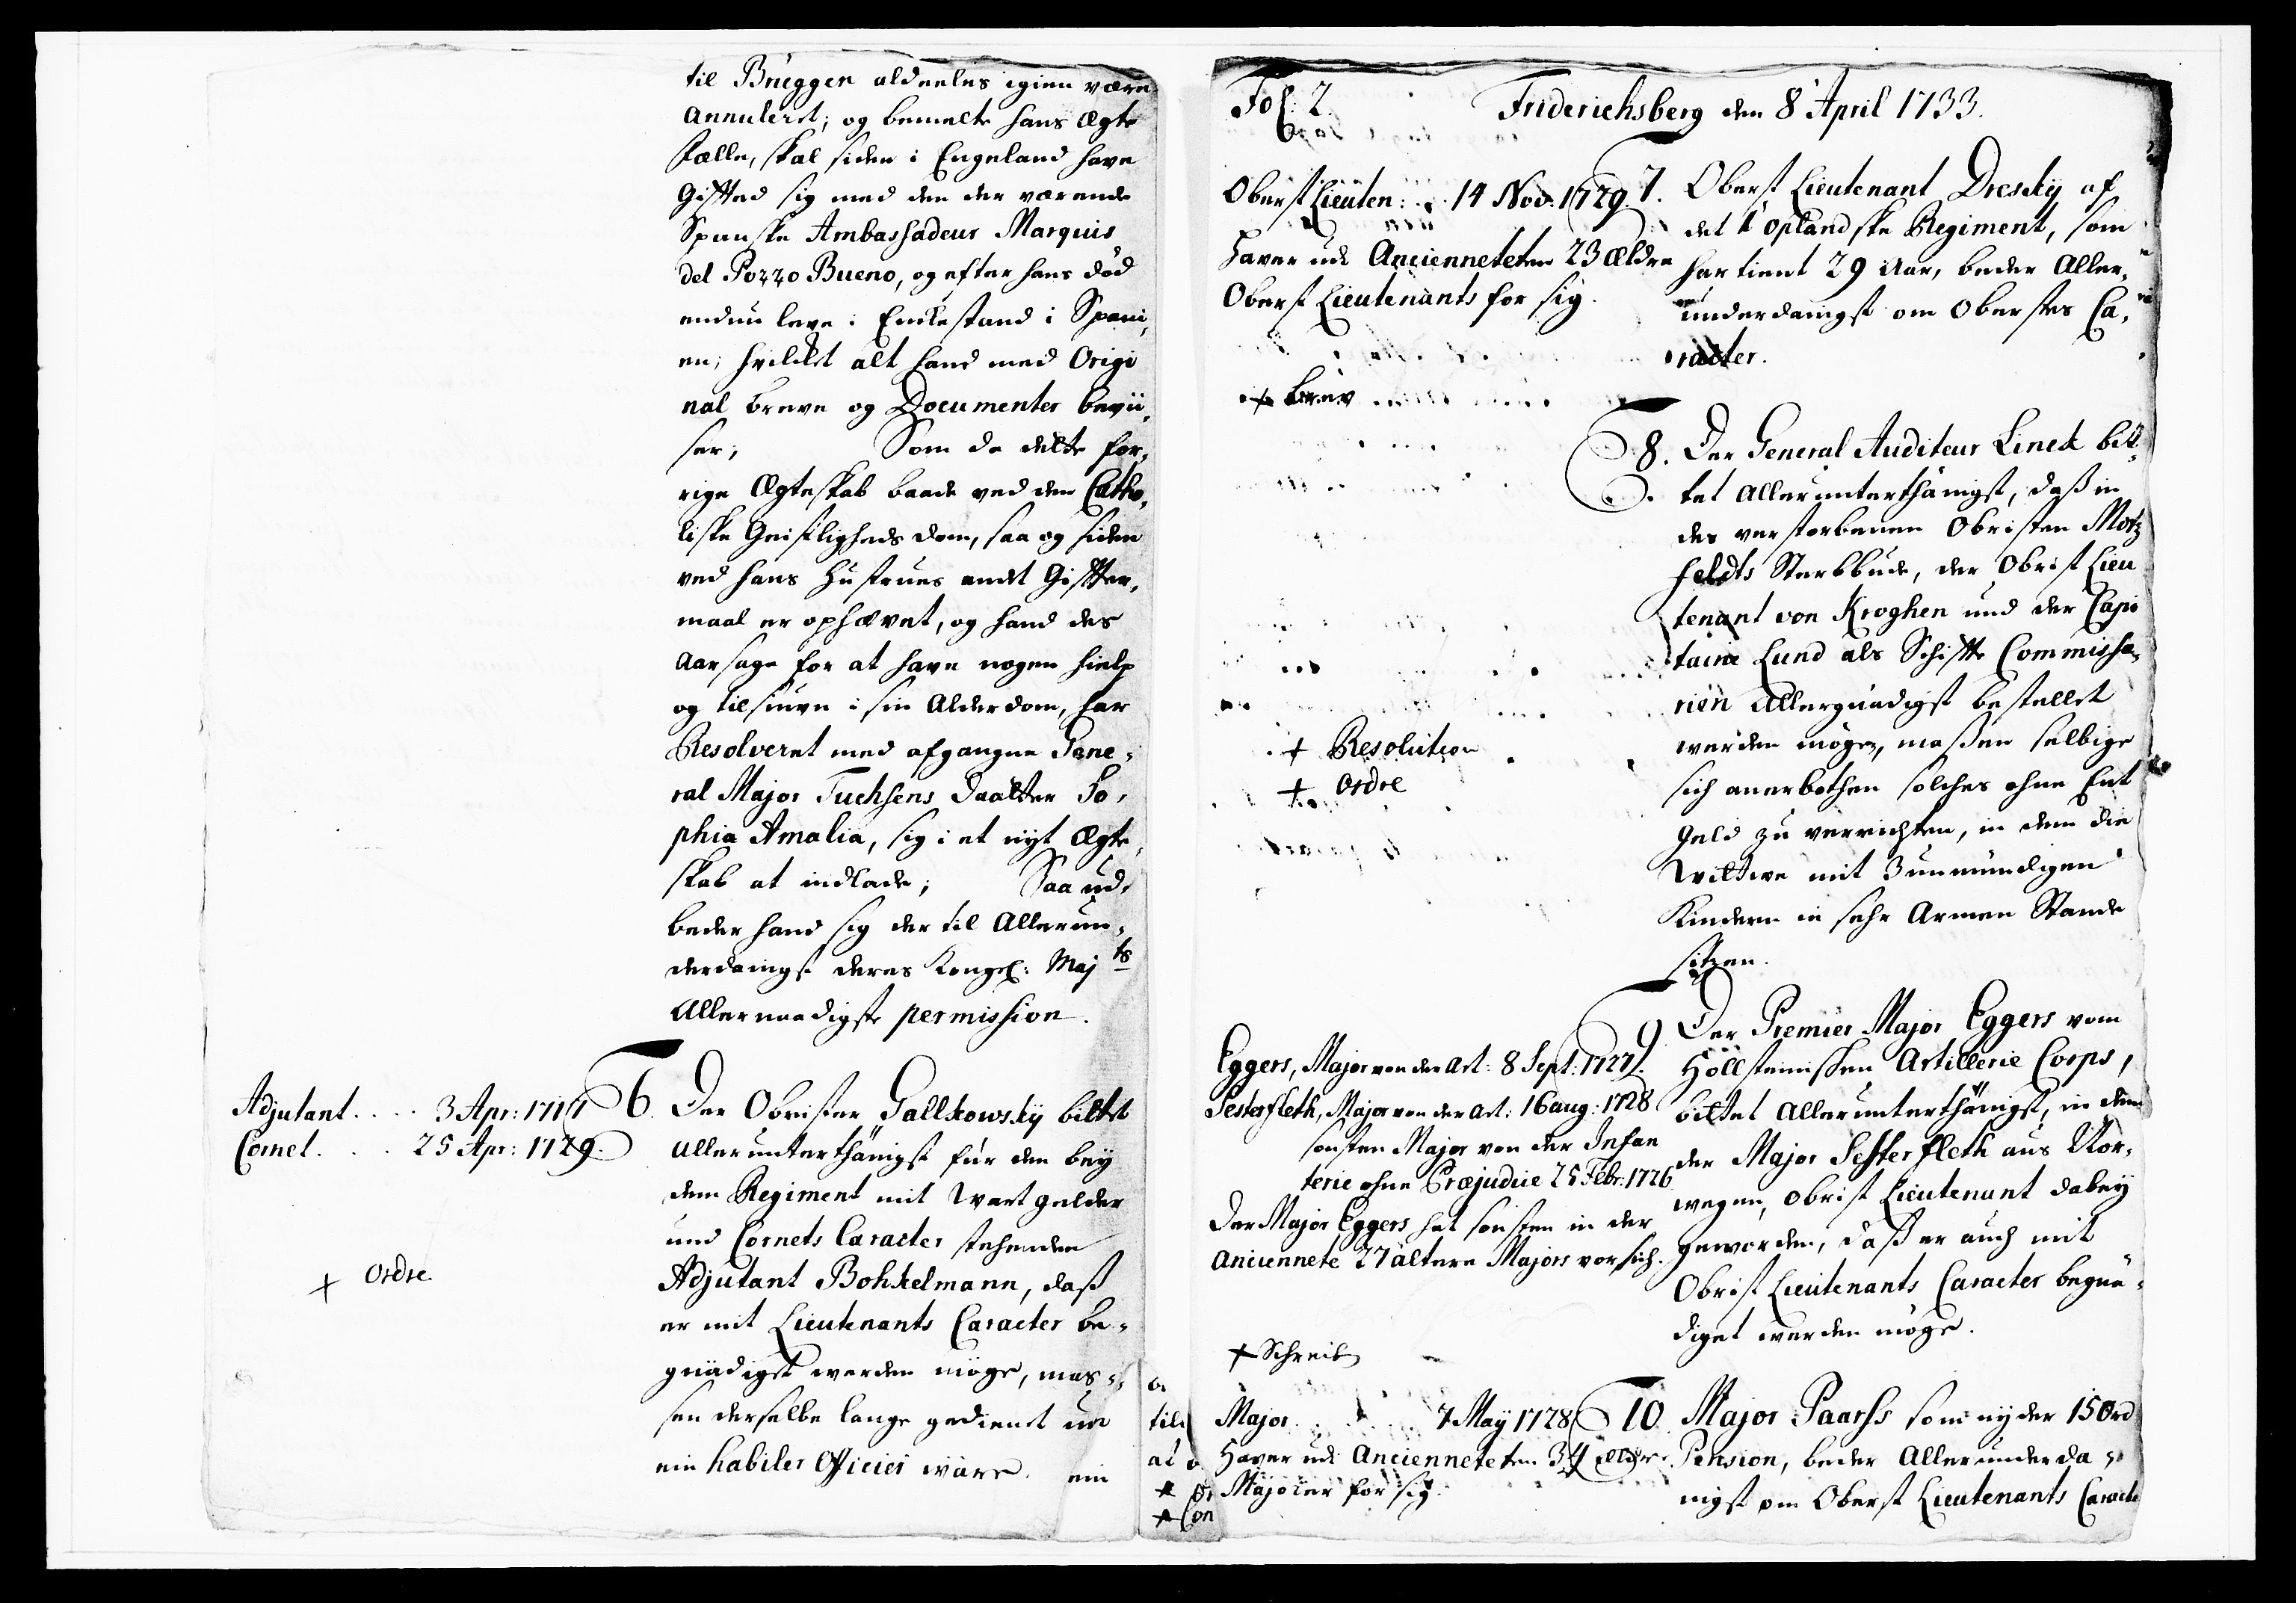 til Brüggen aldeeles igien være
Annuleret; og bemelte hans Ægte
fælle, skal siden i Engeland have
Gifted sig med den der værende
Spanske Ambassadeur Marquis
del Pozzo Bueno, og efter hans død
endnu leve i Enkestand i Spani,
en; hvilket alt hand med Origi
nal breve og Documenter bevii,
ser; Som da dette for,
rige Ægteskab baade ved den Catho,
liske Geistligheds dom, saa og siden
ved hans Hustrues andet Gifter,
maal er ophævet, og hand des
Aarsage for at have nogen hielp
og tilsiuun i sin Alderdom, har
Resolveret med afgangne Gene,
ral Major Fuchsens Daatter So,
phia Amalia, sig i et nyt Ægte,
skab at indlade; Saa ud,
beder hand sig der til Allerun,
derdanigst deres Kongel: Maj ts
Allernaadigste permission.
Adjutant.... 3 Apr: 1717
Cornet.... 25 Apr: 1729.
6. Der Obrister Gallkowskÿ bittet
allerunterthänigst für den beÿ
dem Regiment mit Wart gelder
und Cornets Caracter stehenden
Adjutant Bohkelmann, daß
er mit Lieutenants Caracter be,
gnädiget werden möge, mas,
sen derselbe lange gedienet und
ein habiler Officier wäre. ein
+ Ordre.
til
at
+ Or
+ Con
Fol: 2.
Friderichsberg den 8 April 1733.
Oberst Lieuten:.. 14 Nov: 1729.
Haver udi Ancienneteten 23 Ældre
Oberst Lieutenants for sig.
+ brev
7. Oberst Lieutenant Dreskÿ af
det 1 Oplandske Regiment, som
har tient 29 Aar, beder Aller,
underdanigst om Oberstes Ca,
racter.
8. Der General Auditeur Linck bit,
tet Allerunterthänigst, daß in
des verstorbenen Obristen Motz
feldts Sterbbude, der Obrist Lieu
tenant von Kroghen und der Capi
taine Lund als Schifte Commissa,
rien Allergnädigst bestellet
werden mögen, maßen selbige
sich anerbothen solches ohne Ent
Geld zu verrichten, in dem die
Wittwe mit 3 unmündigen
Kindern in sehr Armen Stande
sitzen.
+ Resolution
+ Ordre
Eggers, Major von der Art: 8 Sept: 1727.
Sesterfleth, Major von der Art: 16 aug: 1728
sonsten Major von der Infan
terie ohne Præjudice 25 Febr: 1726
Der Major Eggers hat sonsten in der
Anciennete 27 ältere Majors vor sich.
+ Schreib
9. Der Premier Major Eggers vom
Hollsteinischen Artillerie Corps,
bittet Allerunterthänigst, in dem
der Major Sesterfleth aus Nor,
wegen, Obrist Lieutenant dabeÿ
geworden, daß er auch mit
Obrist Lieutenants Caracter begnä,
diget werden möge.
Major.... 7 Maÿ 1728
Haver udi Ancienneteten 34 ældre
Majorer for sig.
10. Major Paarss som nyder 15 Ord
Pension, beder Allerunderda,
nigst om Oberst Lieutenants Caracte